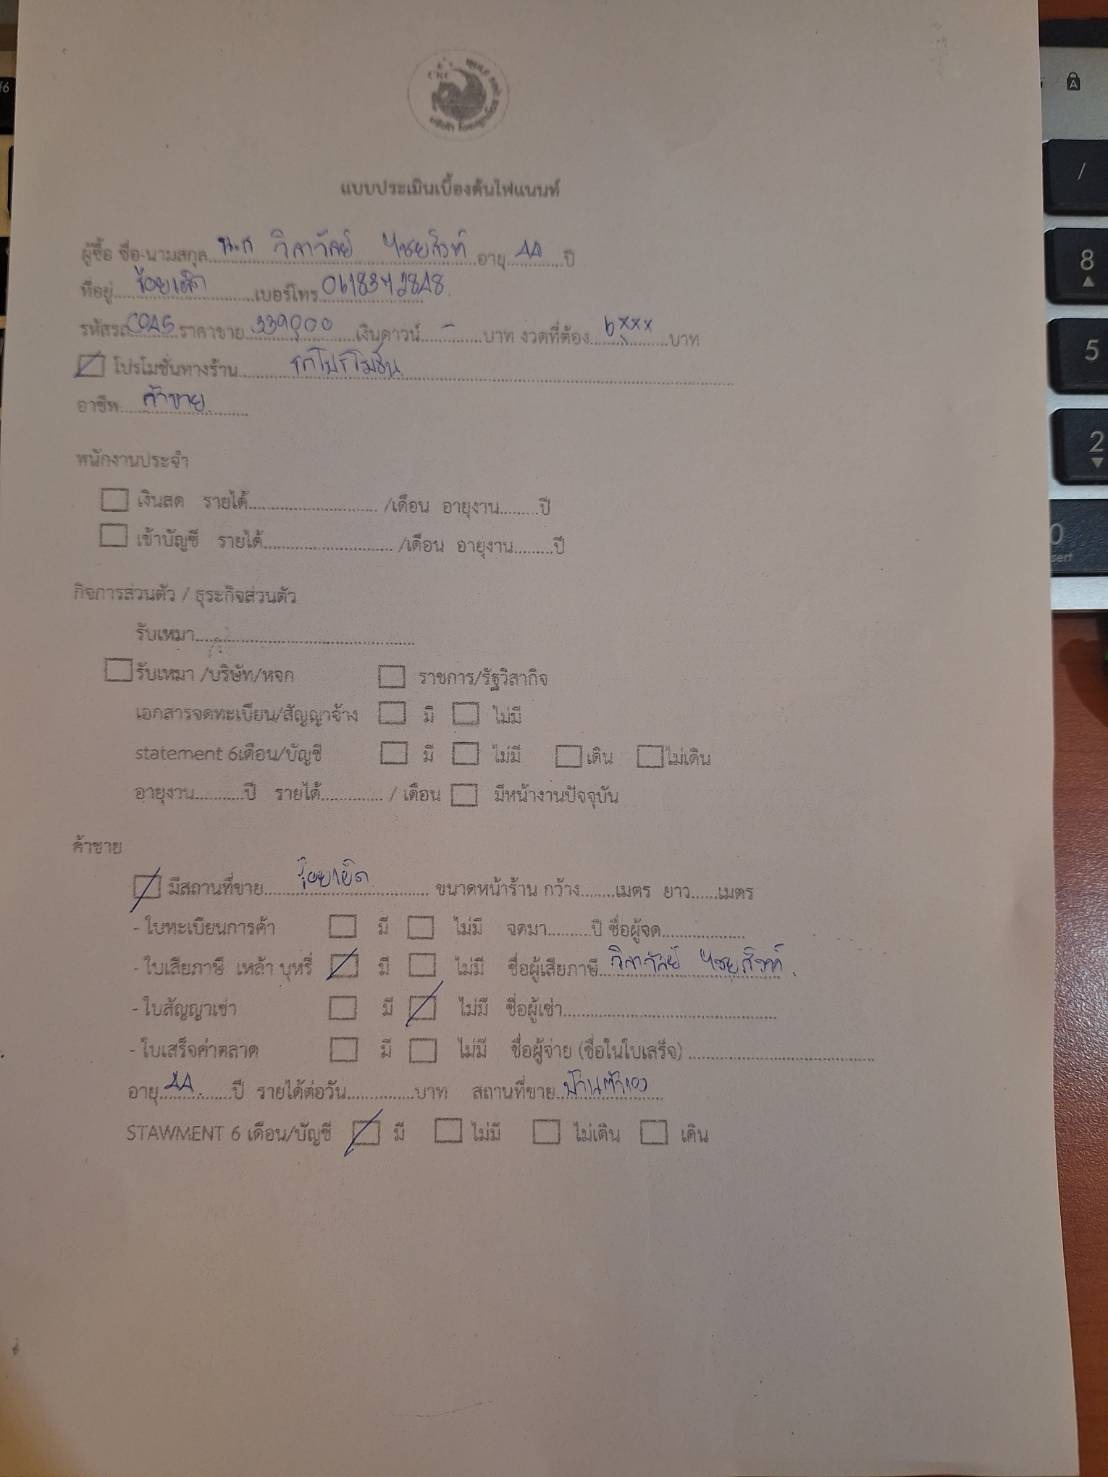 แบบประเมินเบื้องต้นไฟแนนท์
ผู้ซื้อ ชื่อ-นามสกุล น.ส วิลาวัลย์ ไชยสิงห์ อายุ 44 ปี
ที่อยู่ ร้อยเอ็ด เบอร์โทร 0618342848
รหัสรถ CO45 ราคาขาย 339000 เงินดาวน์ - บาท งวดที่ต้อง 6xxx บาท
โปรโมชั่นทางร้าน รถโปรโมชั่น
อาชีพ ค้าขาย
พนักงานประจำ
เงินสด รายได้ /เดือน อายุงาน ปี
เข้าบัญชี รายได้ /เดือน อายุงาน ปี
กิจการส่วนตัว / ธุระกิจส่วนตัว
รับเหมา
รับเหมา /บริษัท/หจก ราชการ/รัฐวิสากิจ
เอกสารจดทะเบียน/สัญญาจ้าง มี ไม่มี
statement 6เดือน/บัญชี มี ไม่มี เดิน ไม่เดิน
อายุงาน ปี รายได้ / เดือน มีหน้างานปัจจุบัน
ค้าขาย
มีสถานที่ขาย ร้อยเอ็ด ขนาดหน้าร้าน กว้าง เมตร ยาว เมตร
- ใบทะเบียนการค้า มี ไม่มี จดมา ปี ชื่อผู้จด
- ใบเสียภาษี เหล้า บุหรี่ มี ไม่มี ชื่อผู้เสียภาษี วิลาวัลย์ ไชยสิงห์
- ใบสัญญาเช่า มี ไม่มี ชื่อผู้เช่า
- ใบเสร็จค่าตลาด มี ไม่มี ชื่อผู้จ่าย (ชื่อในใบเสร็จ)
อายุ 44 ปี รายได้ต่อวัน บาท สถานที่ขาย บ้านตัวเอง
STAWMENT 6 เดือน/บัญชี มี ไม่มี ไม่เดิน เดิน